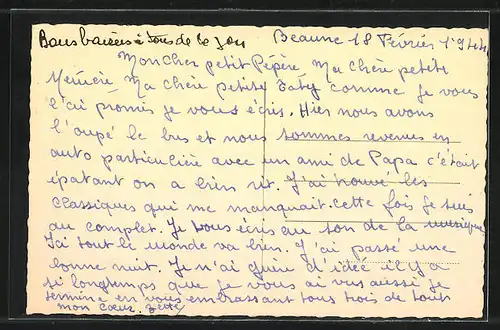 Bons baisers à tous de
Beaune 18 Février 1944
Mon Cher petit Pépère Ma Chère petite
Mémère Ma Chère petite Taty comme je vous
l'ai promis je vous écris. Hier nous avons
loupé le bus et nous sommes revenus en
auto particulière avec un ami de Papa c'était
épatant on a bien rit. J'ai trouvé les
classiques qui me manquait. cette fois je suis
au complet. Je vous écris au son de la musique
Ici tout le monde va bien. J'ai passé une
bonne nuit. Je n'ai guère d'idée il y a
si longtemps que je vous ai vus aussi je
termine en vous embrassant tous trois de tout
mon cœur.